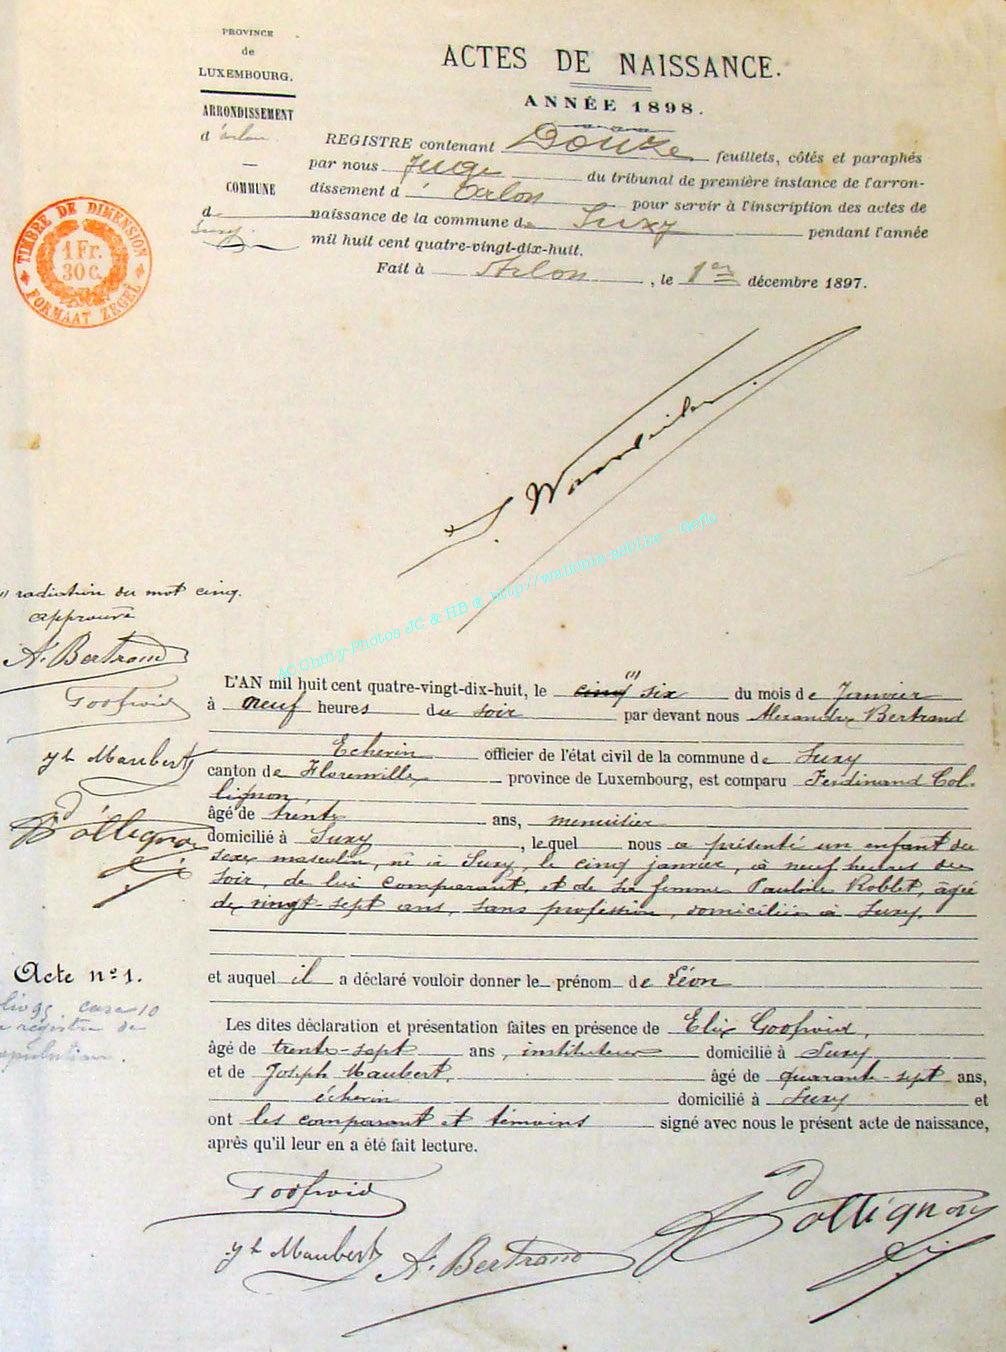 PROVINCE
de
LUXEMBOURG.
ARRONDISSEMENT
d'Arlon
COMMUNE
de
Suxy
TIMBRE DE DIMENSION
1 Fr.
30 C.
FORMAAT ZEGEL
ACTES DE NAISSANCE.
ANNÉE 1898.
REGISTRE contenant Douze feuillets, côtés et paraphés
par nous Juge du tribunal de première instance de l'arron-
dissement d'Arlon pour servir à l'inscription des actes de
naissance de la commune de Suxy pendant l'année
mil huit cent quatre-vingt-dix-huit.
Fait à Arlon, le 1er décembre 1897.
AC Chiny-Photos JC & HB @ http://wallonia-asbl.be - Geflo
(1) radiation du mot cinq.
approuvée
A. Bertrand
Goofroid
Jh Maubert
Collignon
L'AN mil huit cent quatre-vingt-dix-huit, le cinq (1) six du mois de Janvier
à neuf heures du soir par devant nous Alexandre Bertrand
Echevin officier de l'état civil de la commune de Suxy
canton de Florenville province de Luxembourg, est comparu Ferdinand Col-
lignon,
âgé de trente ans, menuisier
domicilié à Suxy, lequel nous a présenté un enfant du
sexe masculin, né à Suxy, le cinq janvier, à neuf heures du
soir, de lui comparant et de sa femme Pauline Roblet, âgée
de vingt-sept ans, sans profession, domiciliée à Suxy,
Acte n° 1.
case 10
registre de
population.
et auquel il a déclaré vouloir donner le prénom de Léon
Les dites déclaration et présentation faites en présence de Elie Goofroid,
âgé de trente-sept ans, instituteur domicilié à Suxy
et de Joseph Maubert, âgé de quarante-sept ans,
échevin domicilié à Suxy et
ont les comparant et témoins signé avec nous le présent acte de naissance,
après qu'il leur en a été fait lecture.
Goofroid
Jh Maubert
A. Bertrand
Collignon